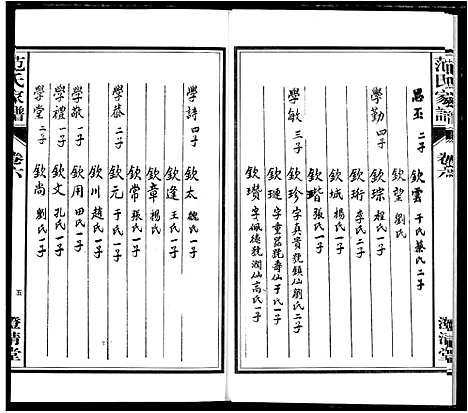 范氏家譜
卷六
二子
欽雲 于氏蔡氏二子
欽望 劉氏
學勤 四子
欽琮 程氏一子
欽珩 李氏二子
欽城 楊氏一子
欽瑎 張氏一子
學敏 三子
欽珍 字真貴號鎮仙劉氏二子
欽璉 字重器號壽仙于氏一子
欽瓚 字佩德號潤仙高氏一子
澄清堂
學詩 四子
欽太 魏氏一子
欽逢 王氏一子
欽章 楊氏
欽常 張氏一子
學恭 二子
欽元 于氏一子
欽川 趙氏一子
學敬 一子
欽用 田氏一子
學禮 一子
欽文 孔氏一子
學堂 二子
欽尚 劉氏一子
范氏家譜
卷六
五
澄清堂